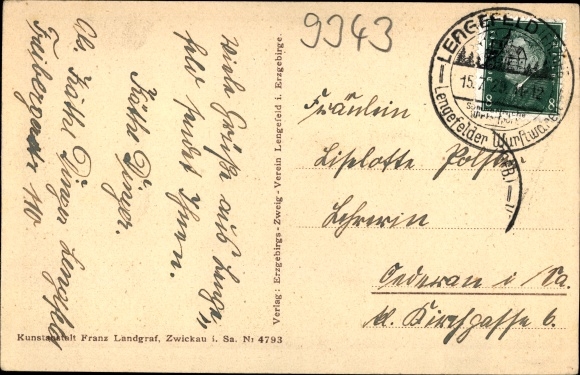 9343
LENGEFELD
15.7.29
Lengefelder Wurstwaren
8
8
Viele Grüße aus Lenge„
feld sendet Ihnen
Käthe Dinger.
Abs. Käthe Dinger Lengefeld
Freibergerstr 110
Verlag: Erzgebirgs-Zweig-Verein Lengefeld i. Erzgebirge.
Fräulein
Liselotte
Lehrerin
Oederan i Sa.
kl. Kirchgasse 6.
Kunstanstalt Franz Landgraf, Zwickau i. Sa. Nr 4793